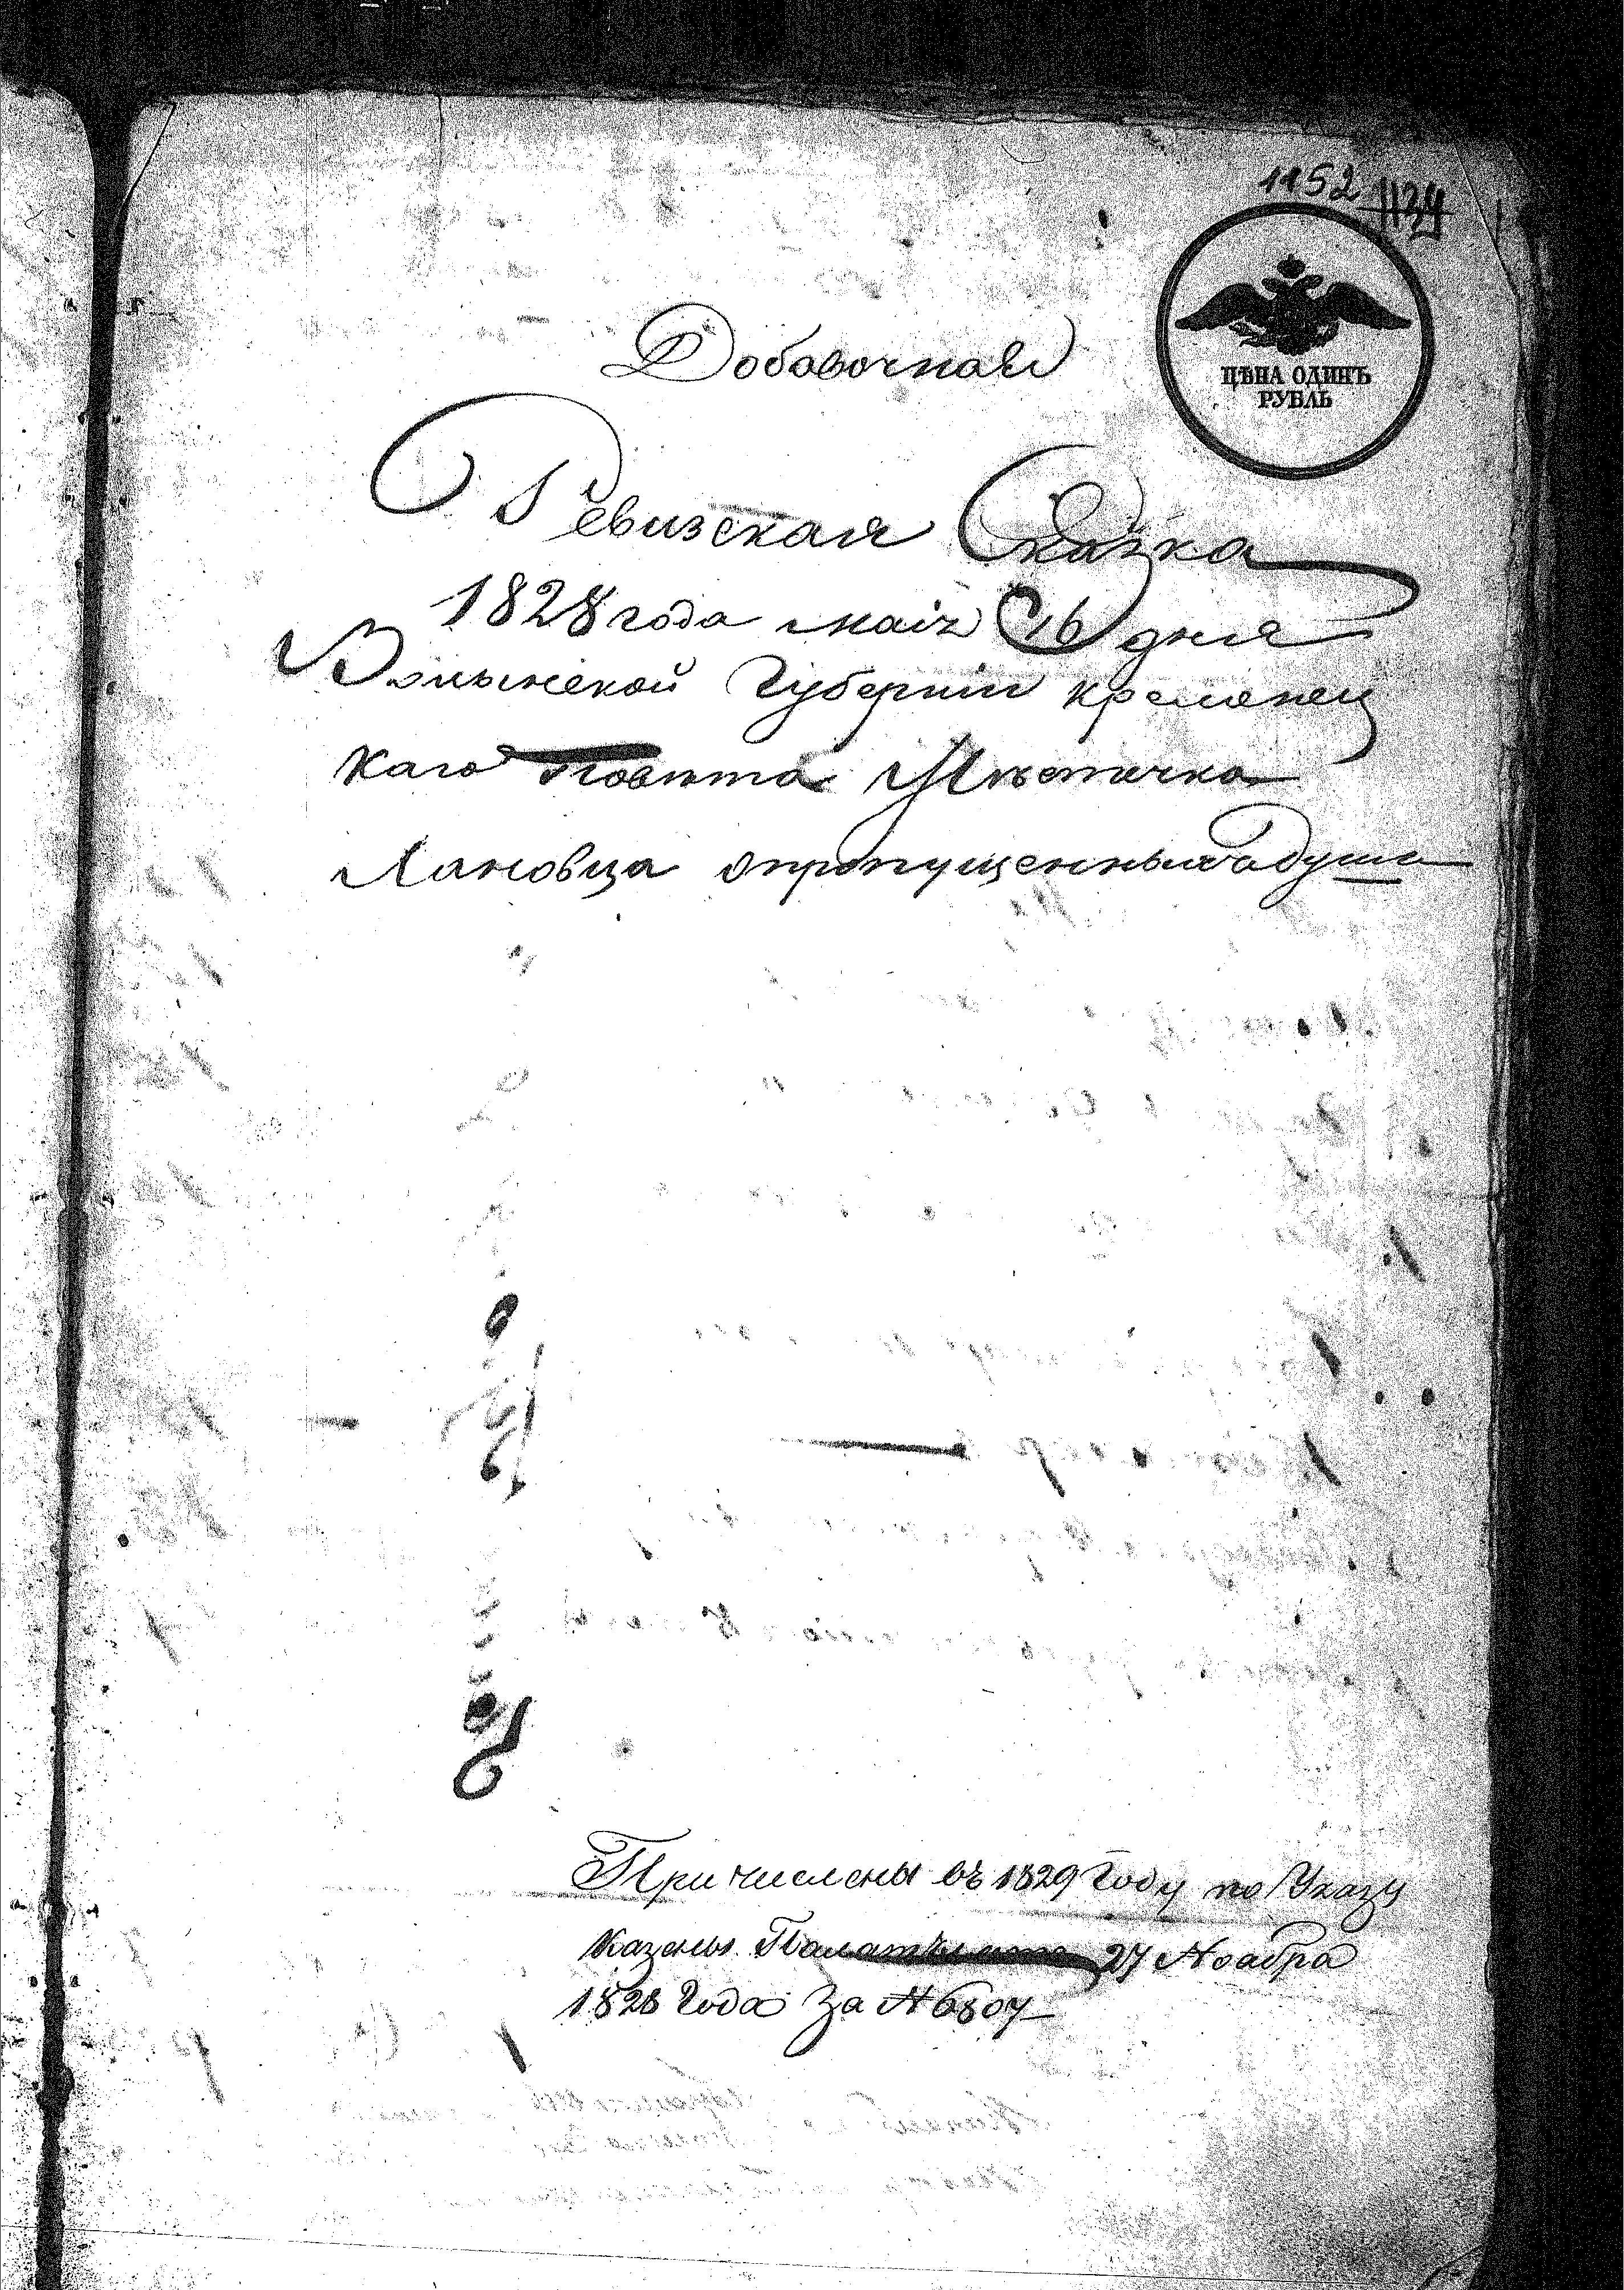 1152 1134
ЦѢНА ОДИНЪ
РУБЛЬ
Добавочная
Ревизская Сказка
1828 года маія 16 дня
Волынской Губерніи кременец
каго Повѣта Мѣстечка
Лановца опропущенныхъ душа
Причислены въ 1829 Году по Указу
Казены. Палаты 27 Ноабра
1828 Года За № 6807